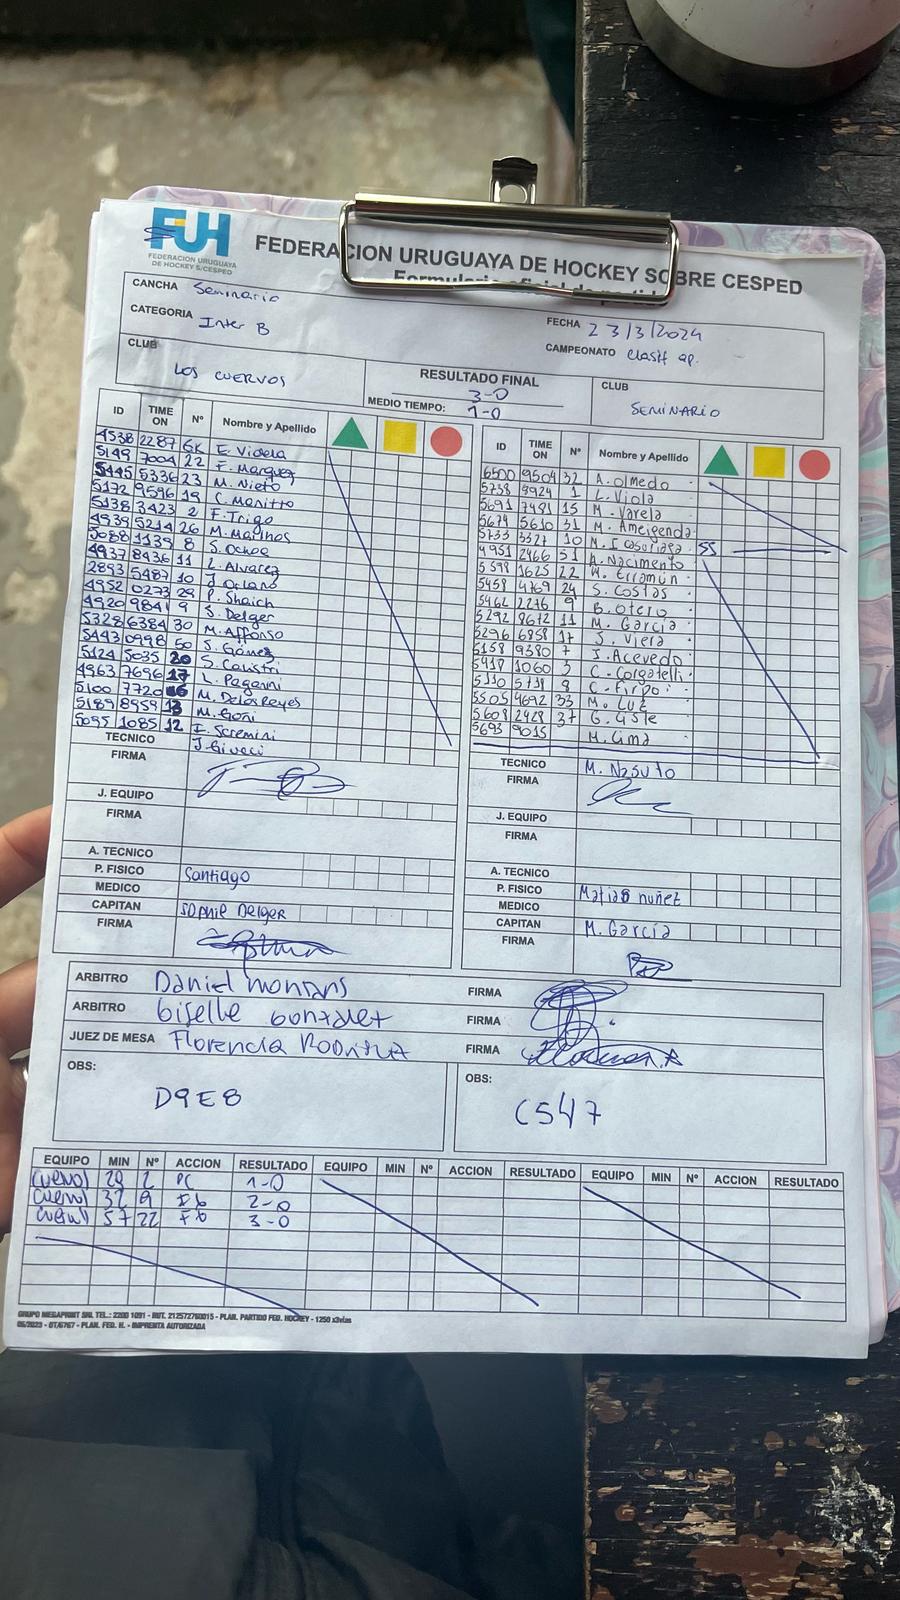 FUH
FEDERACION URUGUAYA
DE HOCKEY S/CESPED
FEDERACION URUGUAYA DE HOCKEY SOBRE CESPED
CANCHA Seminario
CATEGORIA Inter B
FECHA 23/3/2024
CAMPEONATO Clasif ap.
CLUB LOS CUERVOS
RESULTADO FINAL 3-0
MEDIO TIEMPO: 1-0
CLUB SEMINARIO
ID TIME ON Nº Nombre y Apellido
4538 2287 GK E. Videla
5149 7004 22 F. Marquez
5445 5336 23 M. Nieto
5172 9596 19 C. Manitto
5138 3423 2 F. Trigo
4939 5214 26 M. Marinos
5088 1139 8 S. Ochoa
4937 8436 11 L. Alvarez
2893 5487 10
4952 0273 29 P. Shaich
4920 9841 9 S. Delger
5328 6384 30 M. Affonso
5443 0998 50 S. Gómez
5124 5035 20
4963 7696 17 L. Paganini
5100 7720 16 M. Delos Reyes
5189 8959 13 M. Goñi
5095 1085 12 I. Scremini
TECNICO
FIRMA
J. EQUIPO
FIRMA
A. TECNICO
P. FISICO Santiago
MEDICO
CAPITAN Sophie Delger
FIRMA
ID TIME ON Nº Nombre y Apellido
6500 9504 32 A. Olmedo
5738 8924 1 L. Viola
5691 7481 15 M. Varela
5674 5610 31 M. Ameigenda
5733 3327 10 M. I Casuriaga 55
4951 2466 51 A. Nacimento
5598 1625 22 M. Erramun
5458 4769 24 S. Costas
5462 2216 9 B. Otero
5292 8672 11 M. Garcia
5296 6858 17 S. Viera
5158 9380 7 J. Acevedo
5418 1060 3 C. Corgatelli
5110 5731 8 C. Firpo
5505 4692 33 M. Luz
5608 2428 37 G. Giste
5693 9015 M. Cima
TECNICO M. Nasuto
FIRMA
J. EQUIPO
FIRMA
A. TECNICO
P. FISICO Matias nuñez
MEDICO
CAPITAN M. Garcia
FIRMA
ARBITRO Daniel FIRMA
ARBITRO Giselle Gonzalez FIRMA
JUEZ DE MESA Florencia Rodriguez FIRMA
OBS: D9E8
OBS: C547
EQUIPO MIN Nº ACCION RESULTADO EQUIPO MIN Nº ACCION RESULTADO EQUIPO MIN Nº ACCION RESULTADO
Cuervos 29 2 PC 1-0
Cuervos 32 9 Fb 2-0
Cuervos 57 22 Fb 3-0
GRUPO MEGAPRINT SRL TEL.: 2200 1091 - RUT. 212572760015 - PLAN. PARTIDO FED. HOCKEY - 1250 x3vías
05/2023 - OT/6767 - PLAN. FED. H. - IMPRENTA AUTORIZADA